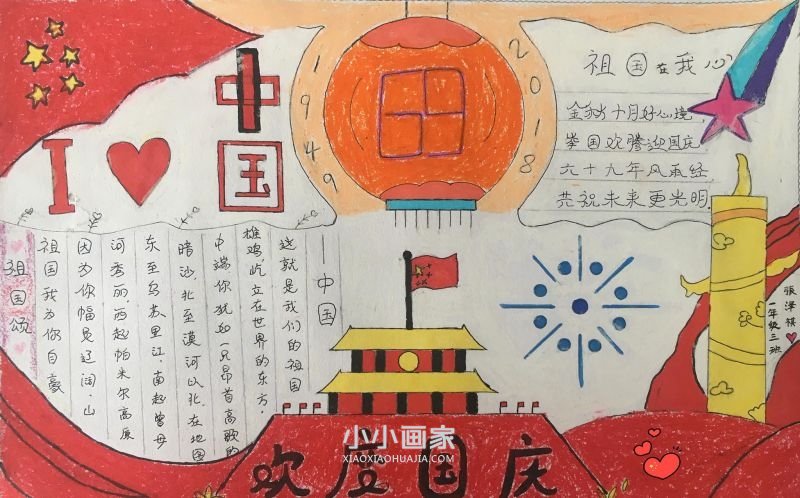 I ❤ 中国
1949
2018
祖国在我心
金秋十月好心境,
举国欢腾迎国庆
六十九年风雨经,
共祝未来更光明.
祖国颂
祖国我为你自豪
因为你幅员辽阔,山
河秀丽,西起帕米尔高原
东至乌苏里江,南起曾母
暗沙,北至漠河以北,在地图
中端你犹如一只昂首高歌的
雄鸡屹立在世界的东方.
这就是我们的祖国
——中国
張泽祺
一年级三班
小小画家
XIAOXIAOHUAJIA.COM
欢度国庆